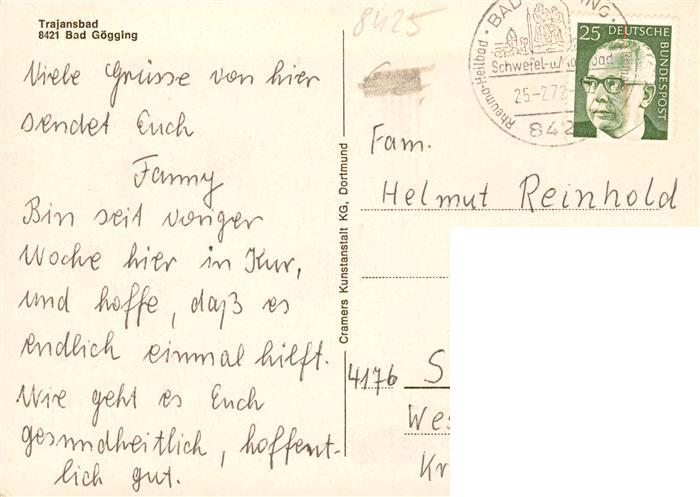 Trajansbad
8421 Bad Gögging
8425
Viele Grüsse von hier
sendet Euch
Fanny
Bin seit voriger
Woche hier in Kur,
und hoffe, daß es
endlich einmal hilft.
Wie geht es Euch
gesundheitlich, hoffent-
lich gut.
Cramers Kunstanstalt KG, Dortmund
BAD GÖGGING
Schwefel-u.
Rheuma-Heilbad
25-2.72
842
25 DEUTSCHE
BUNDESPOST
Fam.
Helmut Reinhold
4176 S
Wes
Kr